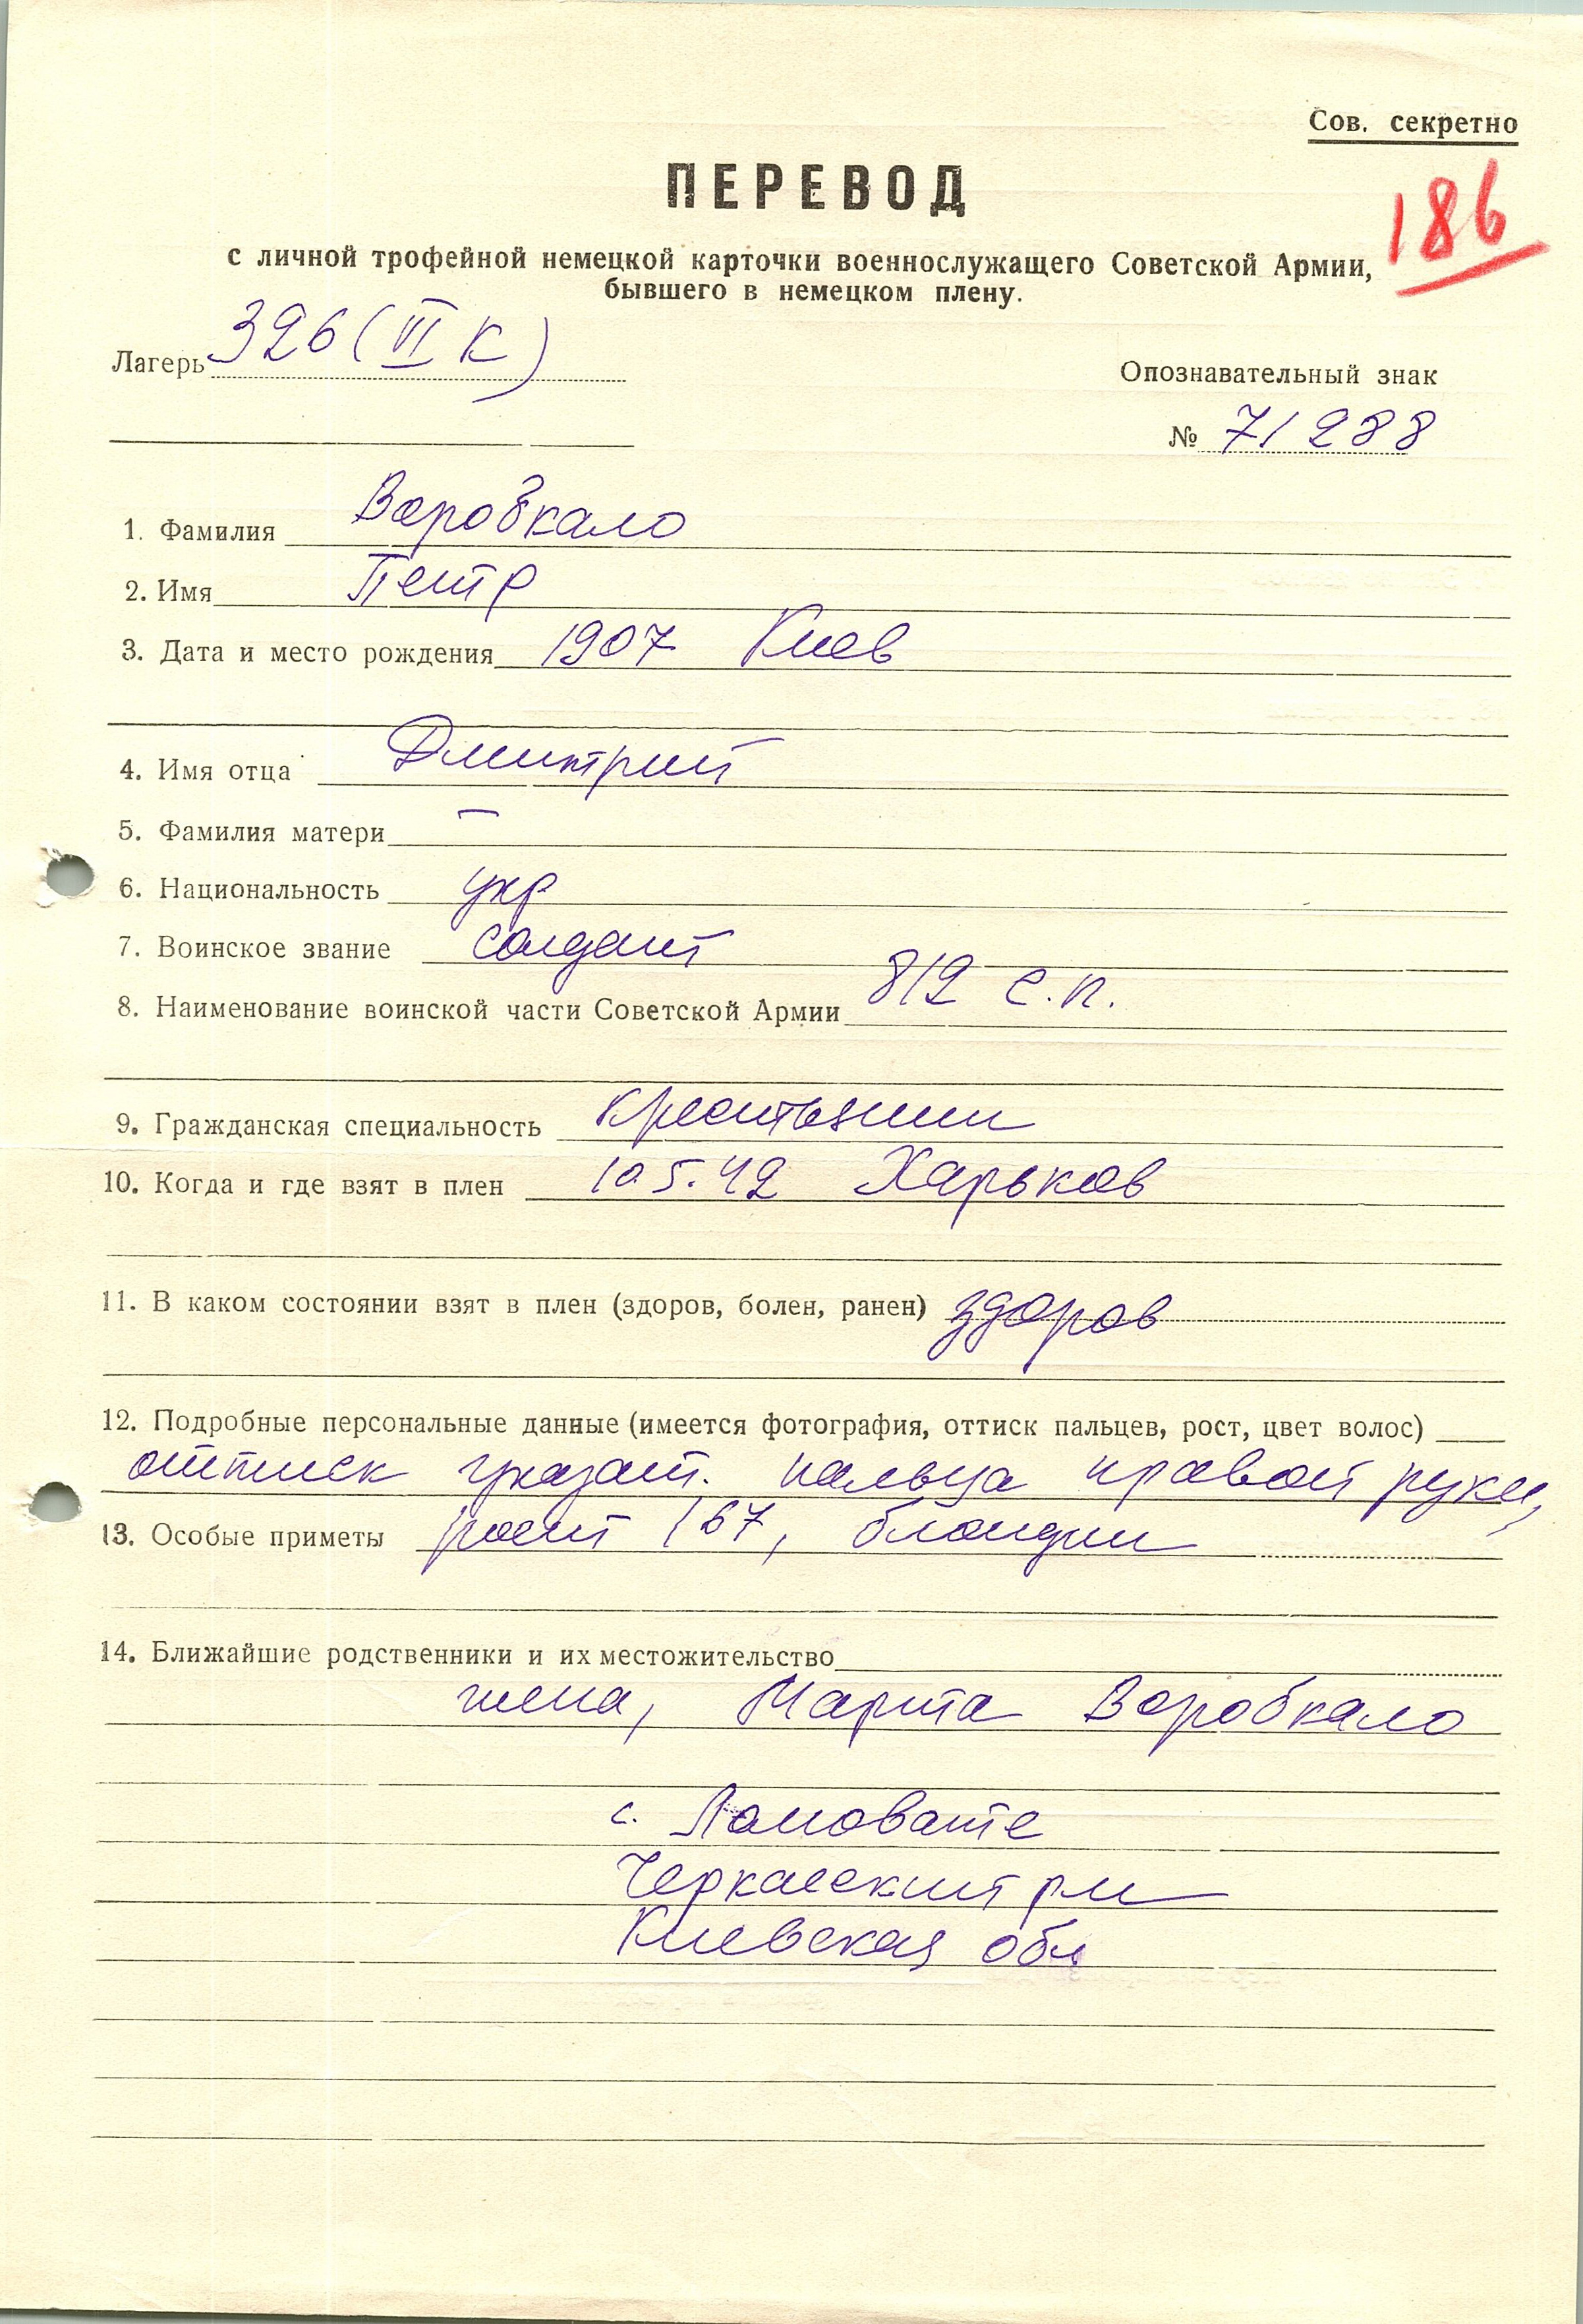 Сов. секретно
ПЕРЕВОД
186
с личной трофейной немецкой карточки военнослужащего Советской Армии,
бывшего в немецком плену.
Лагерь 326 (VI K)
Опознавательный знак
№ 71288
1. Фамилия Воробкало
2. Имя Петр
3. Дата и место рождения 1907 Киев
4. Имя отца Дмитрий
5. Фамилия матери —
6. Национальность укр
7. Воинское звание солдат
8. Наименование воинской части Советской Армии 812 с.п.
9. Гражданская специальность крестьянин
10. Когда и где взят в плен 10.5.42 Харьков
11. В каком состоянии взят в плен (здоров, болен, ранен) здоров
12. Подробные персональные данные (имеется фотография, оттиск пальцев, рост, цвет волос)
оттиск указат. пальца правой руки,
13. Особые приметы рост 167, блондин
14. Ближайшие родственники и их местожительство
жена, Марта Воробкало
с. Ломовате
Черкасский р-н
Киевская обл